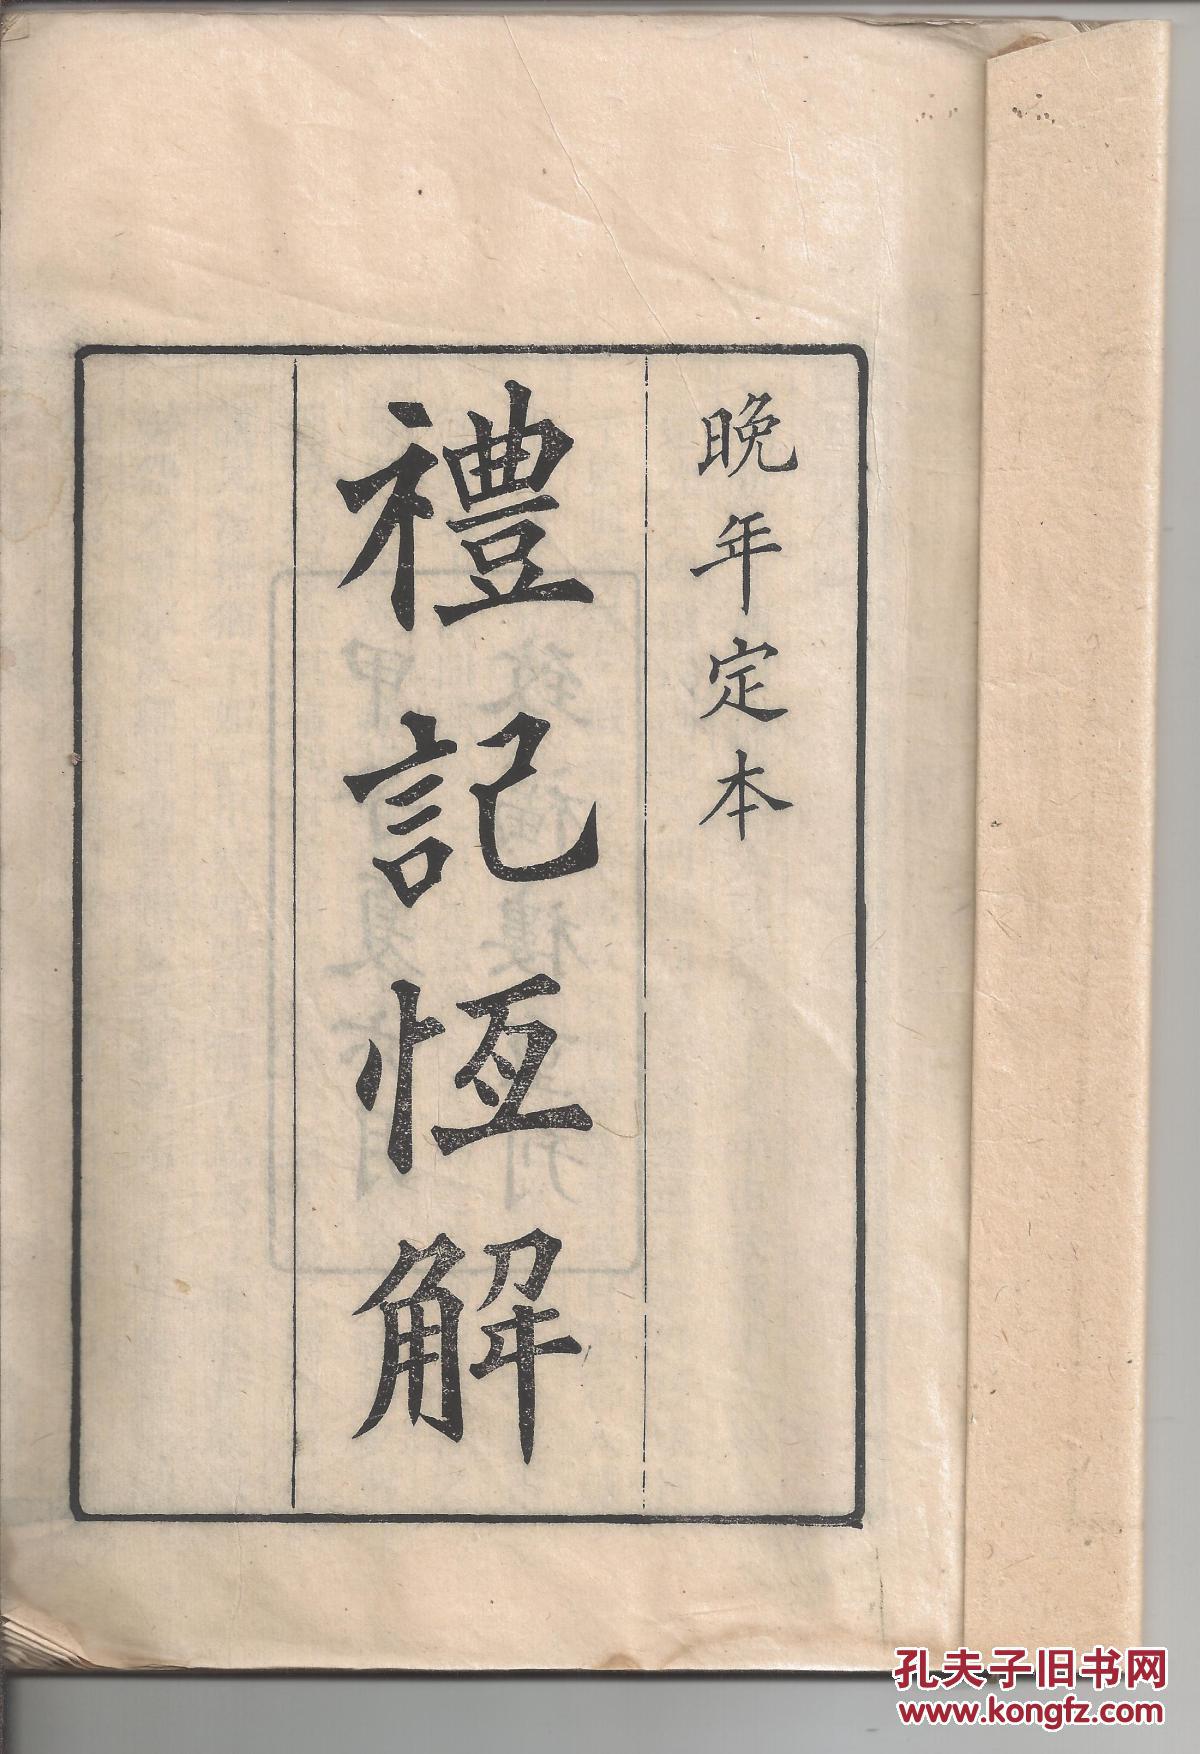 晚年定本
禮記恆解
孔夫子旧书网
www.kongfz.com